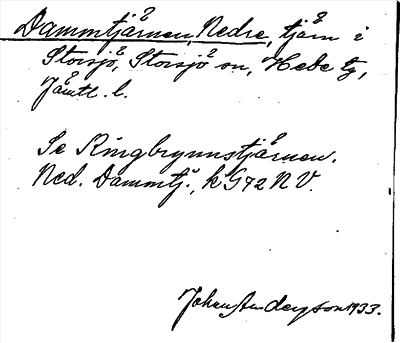 Dammtjärnen, Nedre, tjärn i
Storsjö, Storsjö sn, Hede tg,
Jämtl. l.
Se Ringbrynnstjärnen.
Ned. Dammtj., k G72 NV.
Johan Anderson 1933.